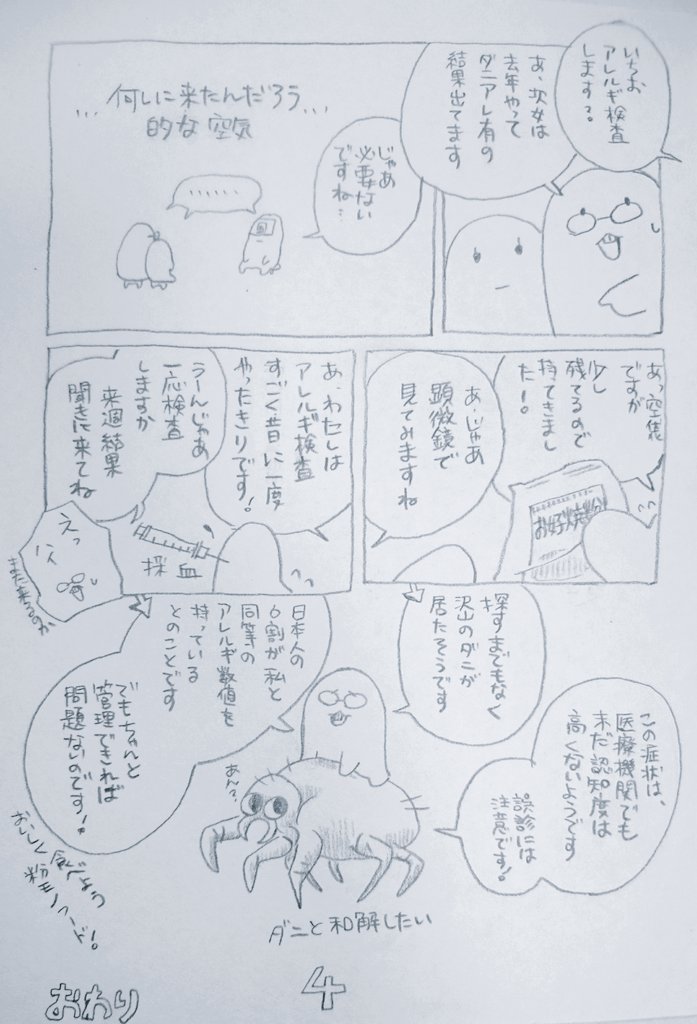 いちお
アレルギ検査
します?
あ、次女は
去年やって
ダニアレ有の
結果出てます
じゃあ
必要ない
ですね…
…何しに来たんだろう…
的な空気
……
あっ空袋
ですが
少し
残てるので
持てきまし
た!
お好焼粉
あ、じゃあ
顕微鏡で
見てみますね
あ、わたしは
アレルギ検査
すごく昔に一度
やったきりです!
うーんじゃあ
一応検査
しますか
来週結果
聞きに来てね
採血
えっ
ハイ
また来るのか
探すまでもなく
沢山のダニが
居たそうです
日本人の
6割が私と
同等の
アレルギ数値を
持っている
とのことです
でもちゃんと
管理できれば
問題ないのです!
この症状は、
医療機関でも
未だ認知度は
高くないようです
誤診には
注意です!
あん?
おいしく食べよう
粉モノフード!
ダニと和解したい
おわり
4